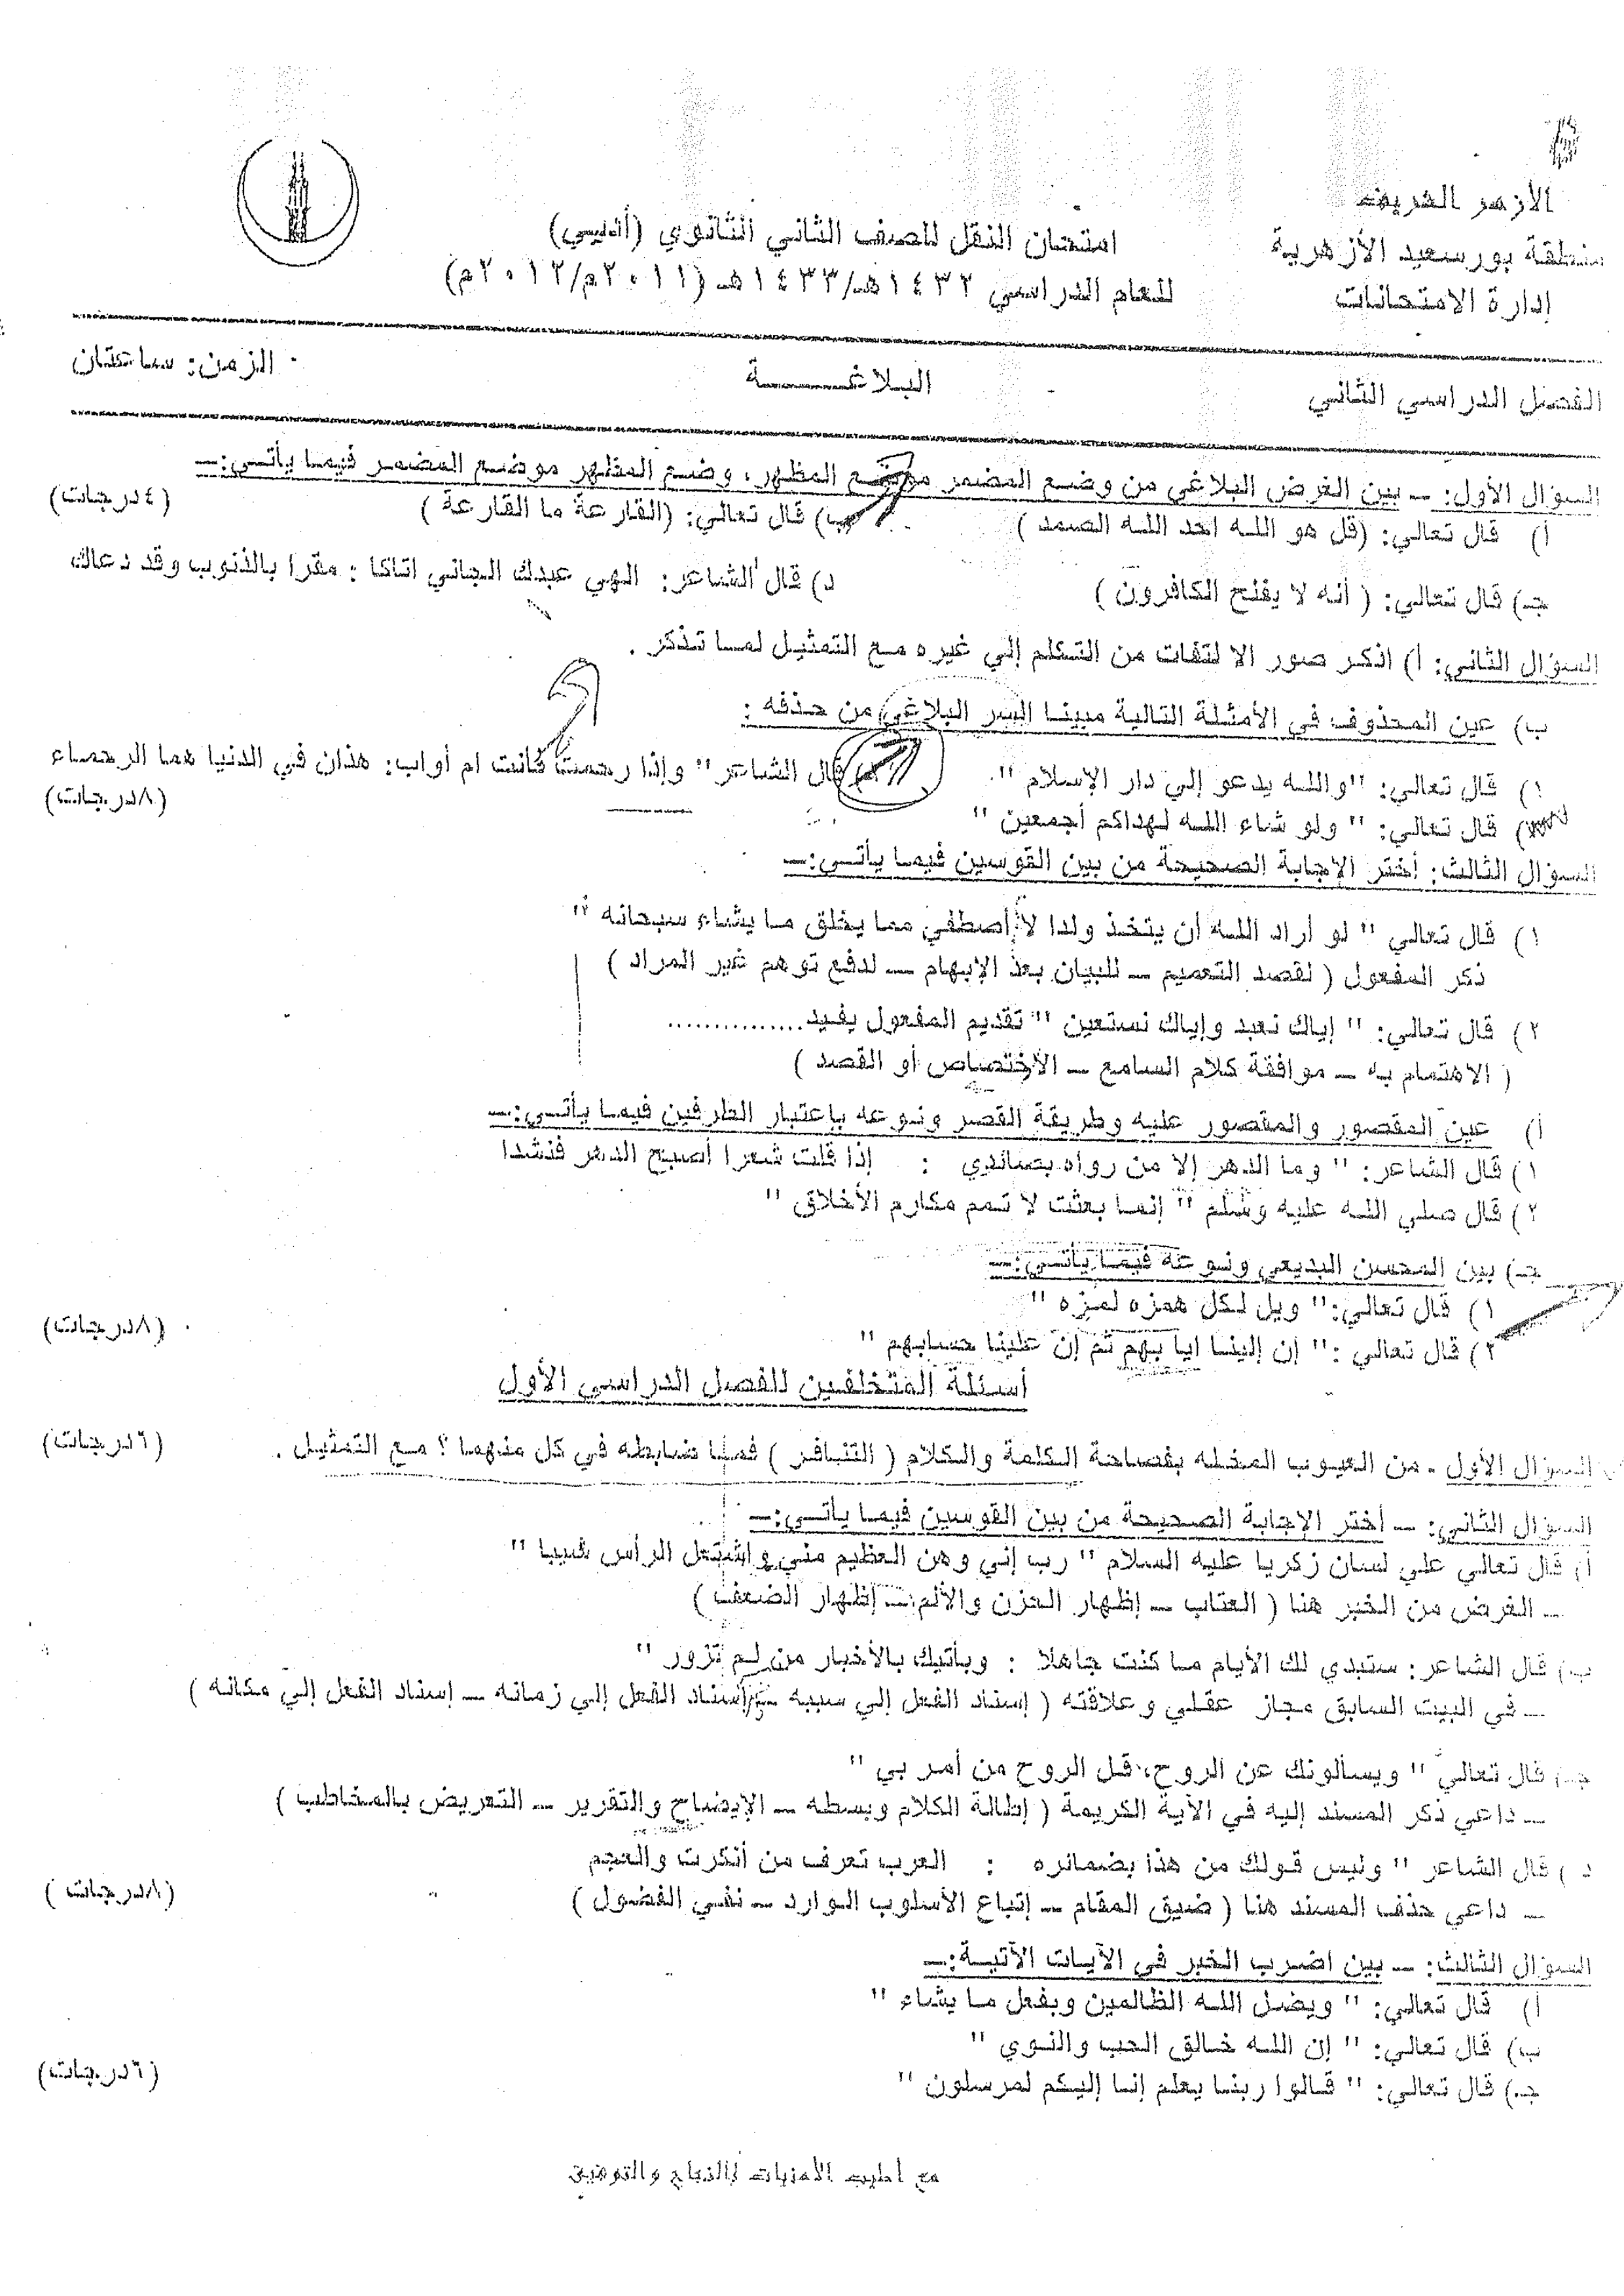 الأزهر الشريف
منطقة بورسعيد الأزهرية
إدارة الامتحانات
امتحان النقل للصف الثاني الثانوي (أدبي)
للعام الدراسي ١٤٣٢هـ/١٤٣٣هـ (٢٠١١م/٢٠١٢م)
الفصل الدراسي الثاني البلاغـــــــة الزمن: ساعتان
السؤال الأول: – بين الغرض البلاغي من وضع المضمر موضع المظهر، وضع المظهر موضع المضمر فيما يأتي:–
أ) قال تعالي: (قل هو الله احد الله الصمد ) ب) قال تعالي: (القارعة ما القارعة ) (٤درجات)
جـ) قال تعالي: ( أنه لا يفلح الكافرون ) د) قال الشاعر: الهي عبدك الجاني اتاكا : مقرا بالذنوب وقد دعاك
السؤال الثاني: أ) اذكر صور الالتفات من التكلم إلي غيره مع التمثيل لما تذكر .
ب) عين المحذوف في الأمثلة التالية مبينا السر البلاغي من حذفه :
١) قال تعالي: "والله يدعو إلي دار الإسلام " قال الشاعر " وإذا رحمت كانت ام أواب: هذان في الدنيا هما الرحماء
قال تعالي: " ولو شاء الله لهداكم أجمعين " (٨درجات)
السؤال الثالث: أختر الإجابة الصحيحة من بين القوسين فيما يأتي:–
١) قال تعالي " لو أراد الله أن يتخذ ولدا لا أصطفي مما يخلق ما يشاء سبحانه "
ذكر المفعول ( لقصد التعميم – للبيان بعد الإبهام – لدفع توهم غير المراد )
٢) قال تعالي: " إياك نعبد وإياك نستعين " تقديم المفعول يفيد...............
( الاهتمام به – موافقة كلام السامع – الأختصاص أو القصد )
أ) عين المقصور والمقصور عليه وطريقة القصر ونوعه بإعتبار الطرفين فيما يأتي:–
١) قال الشاعر: " وما الدهر إلا من رواه بصائدي : إذا قلت شعرا أصبح الدهر فنشدا
٢) قال صلي الله عليه وسلم " إنما بعثت لا تمم مكارم الأخلاق "
جـ) بين المحسن البديعي ونوعه فيما يأتي:–
١) قال تعالي:" ويل لكل همزه لمزه "
٢) قال تعالي :" إن إلينا ايابهم ثم إن علينا حسابهم " (٨درجات)
أسئلة المتخلفين للفصل الدراسي الأول
السؤال الأول - من العيوب المخله بفصاحة الكلمة والكلام ( التنافر ) فما ضابطه في كل منهما ؟ مع التمثيل . (٦درجات)
السؤال الثاني: – أختر الإجابة الصحيحة من بين القوسين فيما ياتي:–
أ) قال تعالي علي لسان زكريا عليه السلام " رب إني وهن العظيم مني واشتعل الرأس شيبا "
– الغرض من الخبر هنا ( العتاب – إظهار الحزن والألم – إظهار الضعف )
ب) قال الشاعر: ستبدي لك الأيام ما كنت جاهلا : ويأتيك بالأخبار من لم تزور "
– في البيت السابق مجاز عقلي وعلاقته ( إسناد الفعل إلي سببه – إسناد الفعل إلي زمانه – إسناد الفعل إلي مكانه )
جـ) قال تعالي " ويسألونك عن الروح، قل الروح من أمر بي "
– داعي ذكر المسند إليه في الآية الكريمة ( إطالة الكلام وبسطه – الإيضاح والتقرير – التعريض بالمخاطب )
د ) قال الشاعر " وليس قولك من هذا بضمائره : العرب تعرف من أنكرت والعجم
– داعي حذف المسند هنا ( ضيق المقام – إتباع الأسلوب الوارد – نفي الفضول ) (٨درجات )
السؤال الثالث: – بين اضرب الخبر في الآيات الآتية:–
أ) قال تعالي: " ويضل الله الظالمين ويفعل ما يشاء "
ب) قال تعالي: " إن الله خالق الحب والنوي "
جـ) قال تعالي: " قالوا ربنا يعلم إنا إليكم لمرسلون " (٦درجات)
مع اطيب الأمنيات بالنجاح والتوفيق